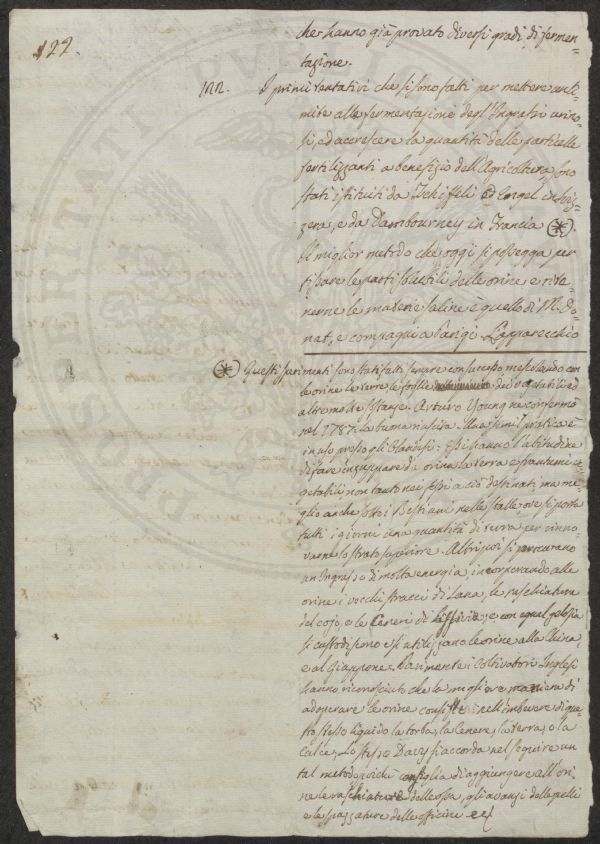 122.
che hanno già provato diversi gradi di fermen=
tazione.
122. I primi tentativi che si sono fatti per mettere un li=
mite alla fermentazione degl'Ingrassi urino=
si, ed accrescere la quantità delle particelle
fertilizzanti a benefizio dell'Agricoltura sono
stati istituiti da Tschiffeli ed Engel in Sviz=
zera, e da Dambourney in Francia (*).
Il miglior metodo che oggi si possegga per
fissare le parti solubili delle orine e rite=
nerne le materie saline è quello di M. Do=
nat, e compagni a Parigi. L'apparecchio
(*) Questi sperimenti sono stati fatti sempre con successo mescolando con
le orine la terra le foglie dei vegetabili ed
altre molte sostanze. Arturo Young ne confermò
nel 1787. la buona riuscita. Una simil pratica è
in uso presso gli Olandesi: Essi hanno l'abitudine
di fare inzuppare di orina la terra e frantumi ve=
getabili non tanto nei fossi a ciò destinati, ma me=
glio anche sotto i Bestiami nelle stalle ove si porta
tutti i giorni una quantità di terra per rinno=
varne lo strato superiore. Altri poi si procurano
un Ingrasso di molta energia, incorporando alle
orine i vecchi stracci di Lana, le raschiature
del cojo, e le Ceneri di Lissivia; e con egual gelosia
si custodiscono e si utilizzano le orine alla China,
e al Giappone. Parimente i Coltivatori Inglesi
hanno riconosciuto che la migliore maniera di
adoperare le orine consiste nell'imbevere di que=
sto stesso liquido la torba, la Cenere, la terra, o la
Calce. Lo stesso Davy si accorda nel seguire un
tal metodo, poichè consiglia di aggiungere all'ori=
ne le raschiature delle ossa, gli avanzi delle pelli
e le spazzature delle officine ec(